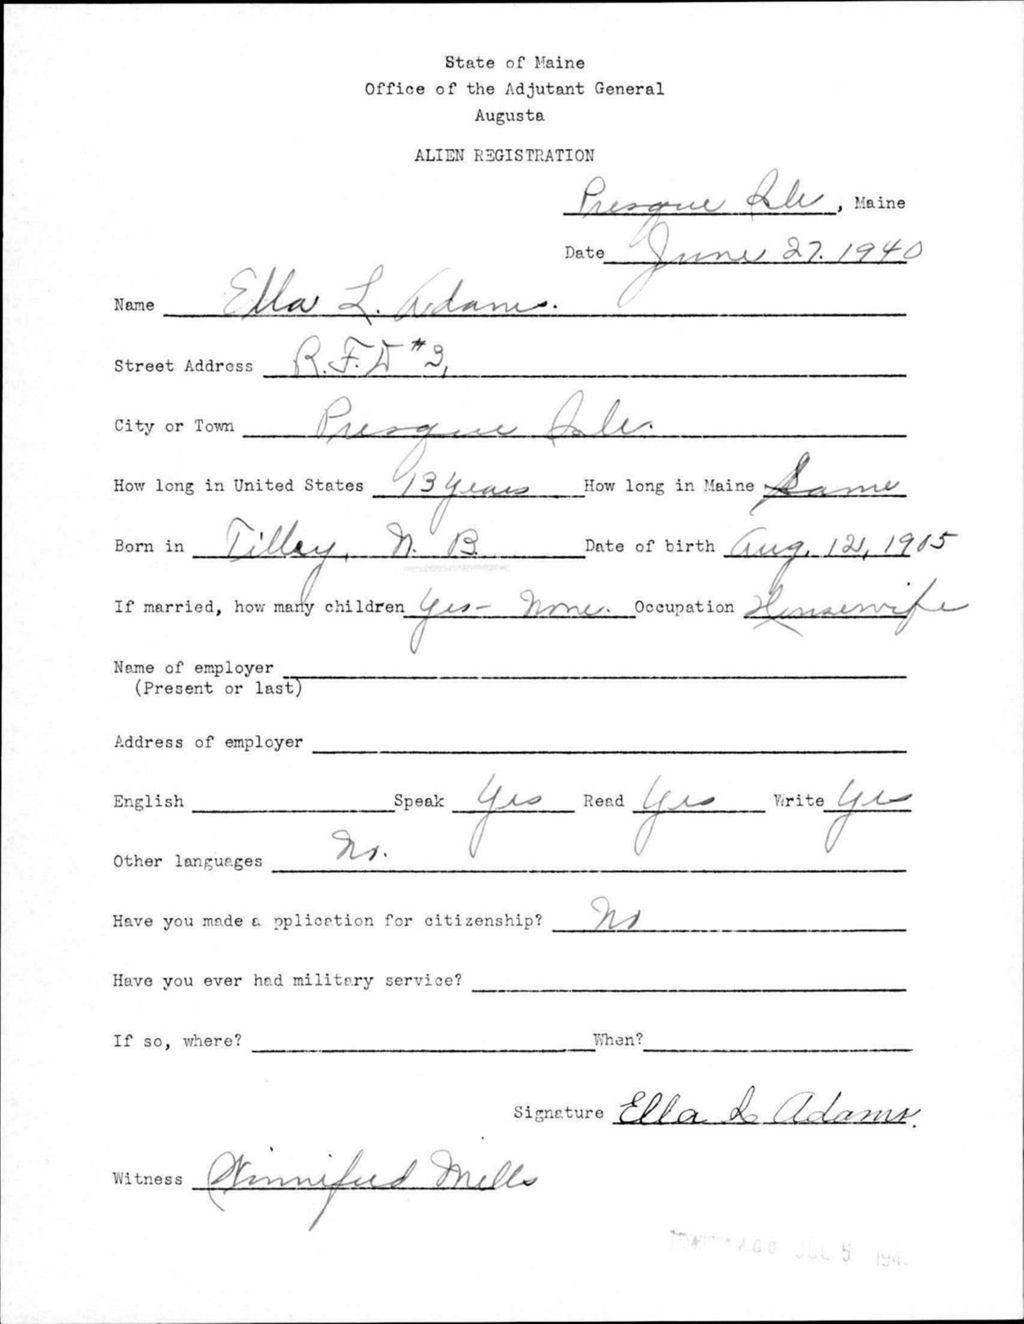 State of Maine
Office of the Adjutant General
Augusta
ALIEN REGISTRATION
Presque Isle, Maine
Date June 27. 1940
Name Ella L. Adams.
Street Address R.F.D #3,
City or Town Presque Isle.
How long in United States 13 years How long in Maine Same
Born in Tilley, N. B. Date of birth Aug. 12, 1905
If married, how many children yes - None. Occupation Housewife
Name of employer
(Present or last)
Address of employer
English Speak Yes Read Yes Write Yes
Other languages No.
Have you made a pplication for citizenship? No
Have you ever had military service?
If so, where? When?
Signature Ella L Adams.
Witness Winnifred Mills
JUL 5